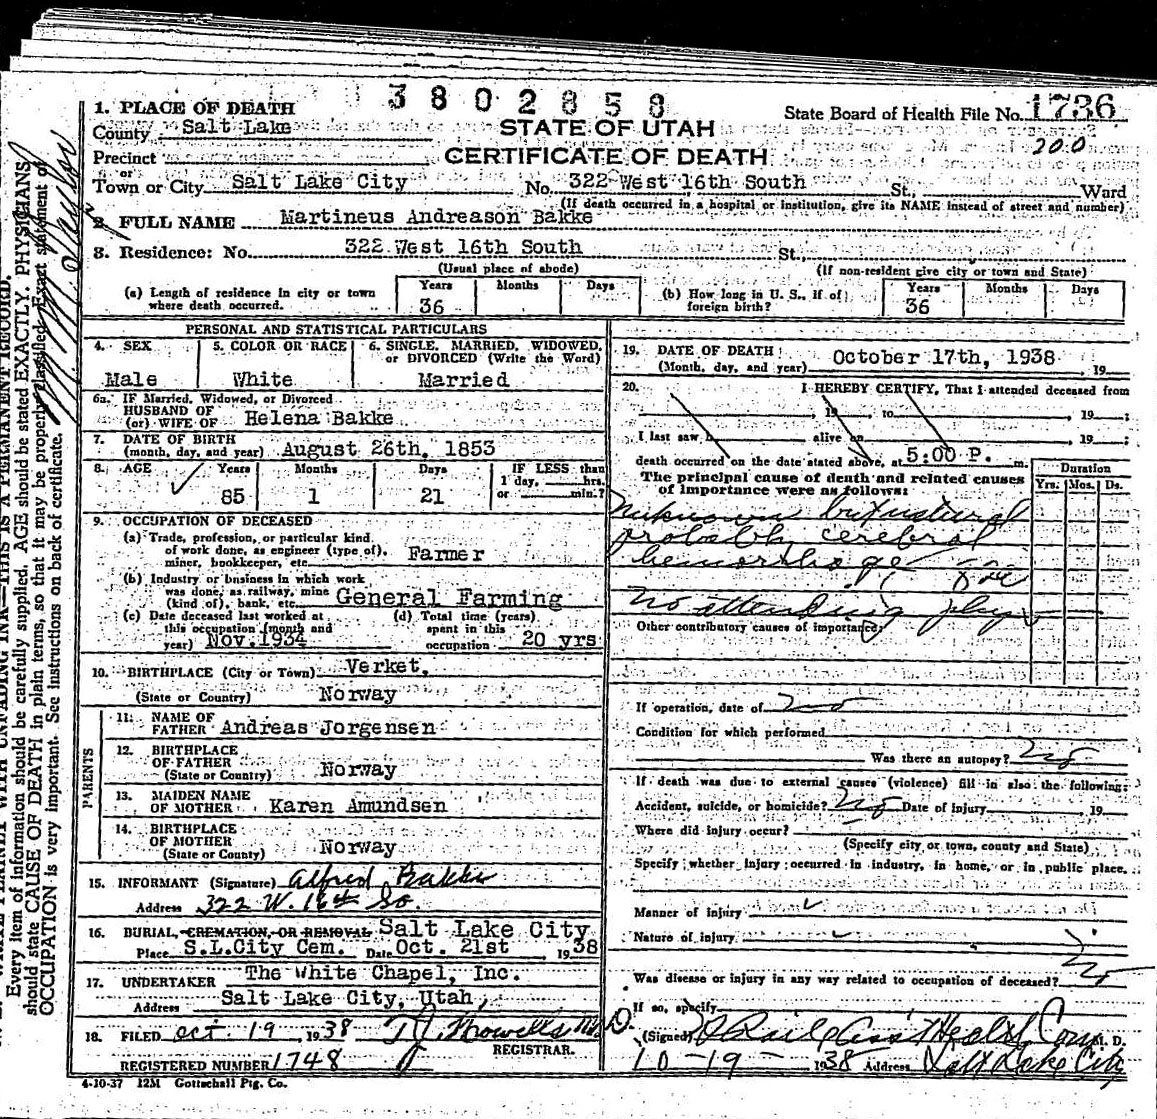 3802858
1. PLACE OF DEATH
State Board of Health File No. 1736
County Salt Lake
STATE OF UTAH
200
Precinct
CERTIFICATE OF DEATH
or
Town or City Salt Lake City No. 322 West 16th South St., Ward
(If death occurred in a hospital or institution, give its NAME instead of street and number)
2. FULL NAME Martineus Andreason Bakke
3. Residence: No. 322 West 16th South St.,
(Usual place of abode) (If non-resident give city or town and State)
(a) Length of residence in city or town where death occurred. Years 36 Months Days
(b) How long in U. S., if of foreign birth? Years 36 Months Days
PERSONAL AND STATISTICAL PARTICULARS
4. SEX Male
5. COLOR OR RACE White
6. SINGLE, MARRIED, WIDOWED, or DIVORCED (Write the Word) Married
6a. IF Married, Widowed, or Divorced
HUSBAND OF
(or) WIFE OF Helena Bakke
7. DATE OF BIRTH
(month, day, and year) August 26th, 1853
8. AGE Years 85 Months 1 Days 21 IF LESS than 1 day, hrs. or min.?
9. OCCUPATION OF DECEASED
(a) Trade, profession, or particular kind
of work done, as engineer (type of),
miner, bookkeeper, etc. Farmer
(b) Industry or business in which work
was done, as railway, mine
(kind of), bank, etc. General Farming
(c) Date deceased last worked at
this occupation (month and
year) Nov. 1934
(d) Total time (years)
spent in this
occupation 20 yrs
10. BIRTHPLACE (City or Town) Verket,
(State or Country) Norway
PARENTS
11. NAME OF
FATHER Andreas Jorgensen
12. BIRTHPLACE
OF FATHER
(State or Country) Norway
13. MAIDEN NAME
OF MOTHER Karen Amundsen
14. BIRTHPLACE
OF MOTHER
(State or Country) Norway
15. INFORMANT (Signature) Alfred Bakke
Address 322 W. 16th So.
16. BURIAL, CREMATION, OR REMOVAL Salt Lake City
Place S.L.City Cem. Date Oct. 21st 1938
17. UNDERTAKER The White Chapel, Inc.
Address Salt Lake City, Utah,
18. FILED Oct. 19, 1938
REGISTRAR.
REGISTERED NUMBER 1748
4-10-37 12M Gottschall Ptg. Co.
19. DATE OF DEATH
(Month, day, and year) October 17th, 1938 19
20. I HEREBY CERTIFY, That I attended deceased from
, 19 , to , 19 ;
I last saw h alive on , 19 ;
death occurred on the date stated above, at 5:00 P. m.
The principal cause of death and related causes
of importance were as follows:
Duration
Yrs. Mos. Ds.
Unknown but natural
probably cerebral
hemorrhage
No attending phys
Other contributory causes of importance:
If operation, date of no
Condition for which performed
Was there an autopsy? no
If death was due to external causes (violence) fill in also the following:
Accident, suicide, or homicide? no Date of injury , 19
Where did injury occur?
(Specify city or town, county and State)
Specify whether injury occurred in industry, in home, or in public place.
Manner of injury
Nature of injury
Was disease or injury in any way related to occupation of deceased? no
If so, specify
(Signed) Ass't Health Com M. D.
10-19-1938 Address Salt Lake City
THIS IS A PERMANENT RECORD.
Every item of information should be carefully supplied. AGE should be stated EXACTLY. PHYSICIANS
should state CAUSE OF DEATH in plain terms, so that it may be properly classified. Exact statement of
OCCUPATION is very important. See instructions on back of certificate.